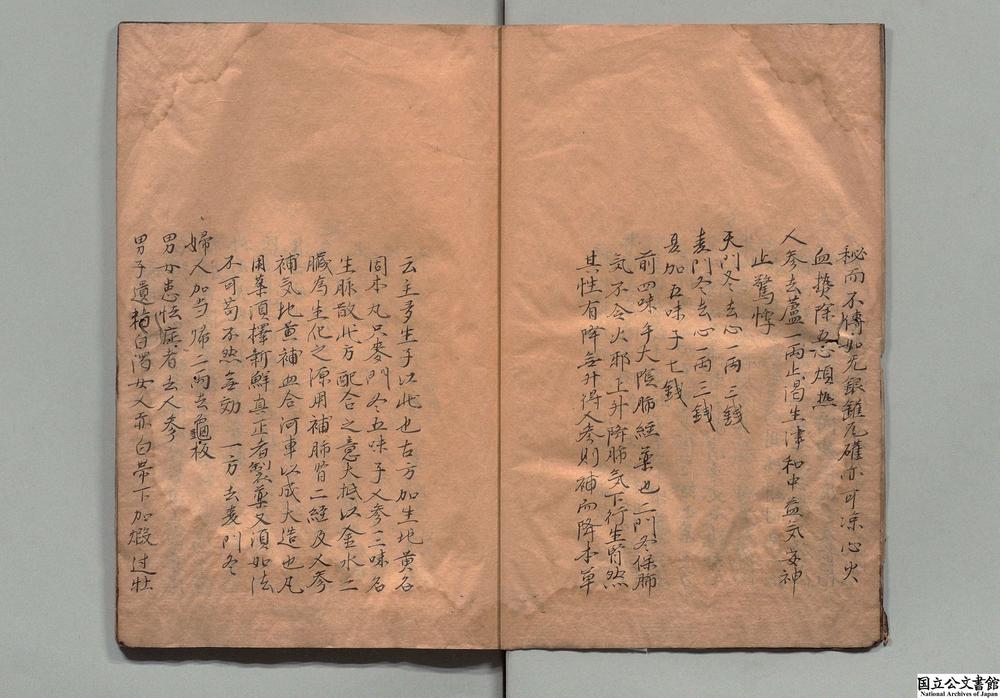 秘而不傳如无銀錐瓦礶亦可凉心火
血損除五心煩熱
人参去蘆一両止渇生津和中益気安神
止驚悸
天門冬去心一両三銭
麦門冬去心一両三銭
夏加五味子七銭
前四味手太陰肺経薬也二門冬保肺
気不令火邪上升降肺気下行生腎然
其性有降無升得人参則補而降本草
云主多生子以此也古方加生地黄名
固本丸只麦門冬五味子人参三味名
生脉散此方配合之意大抵以金水二
臓為生化之源用補肺腎二経及人参
補気地黄補血合河車以成大造也凡
用薬須擇新鮮真正者製薬又須如法
不可苟不然無効 一方去麦門冬
婦人加当帰二両去龜板
男女患怯症者去人参
男子遺精白濁女人赤白帯下加煆过牡
国立公文書館
National Archives of Japan